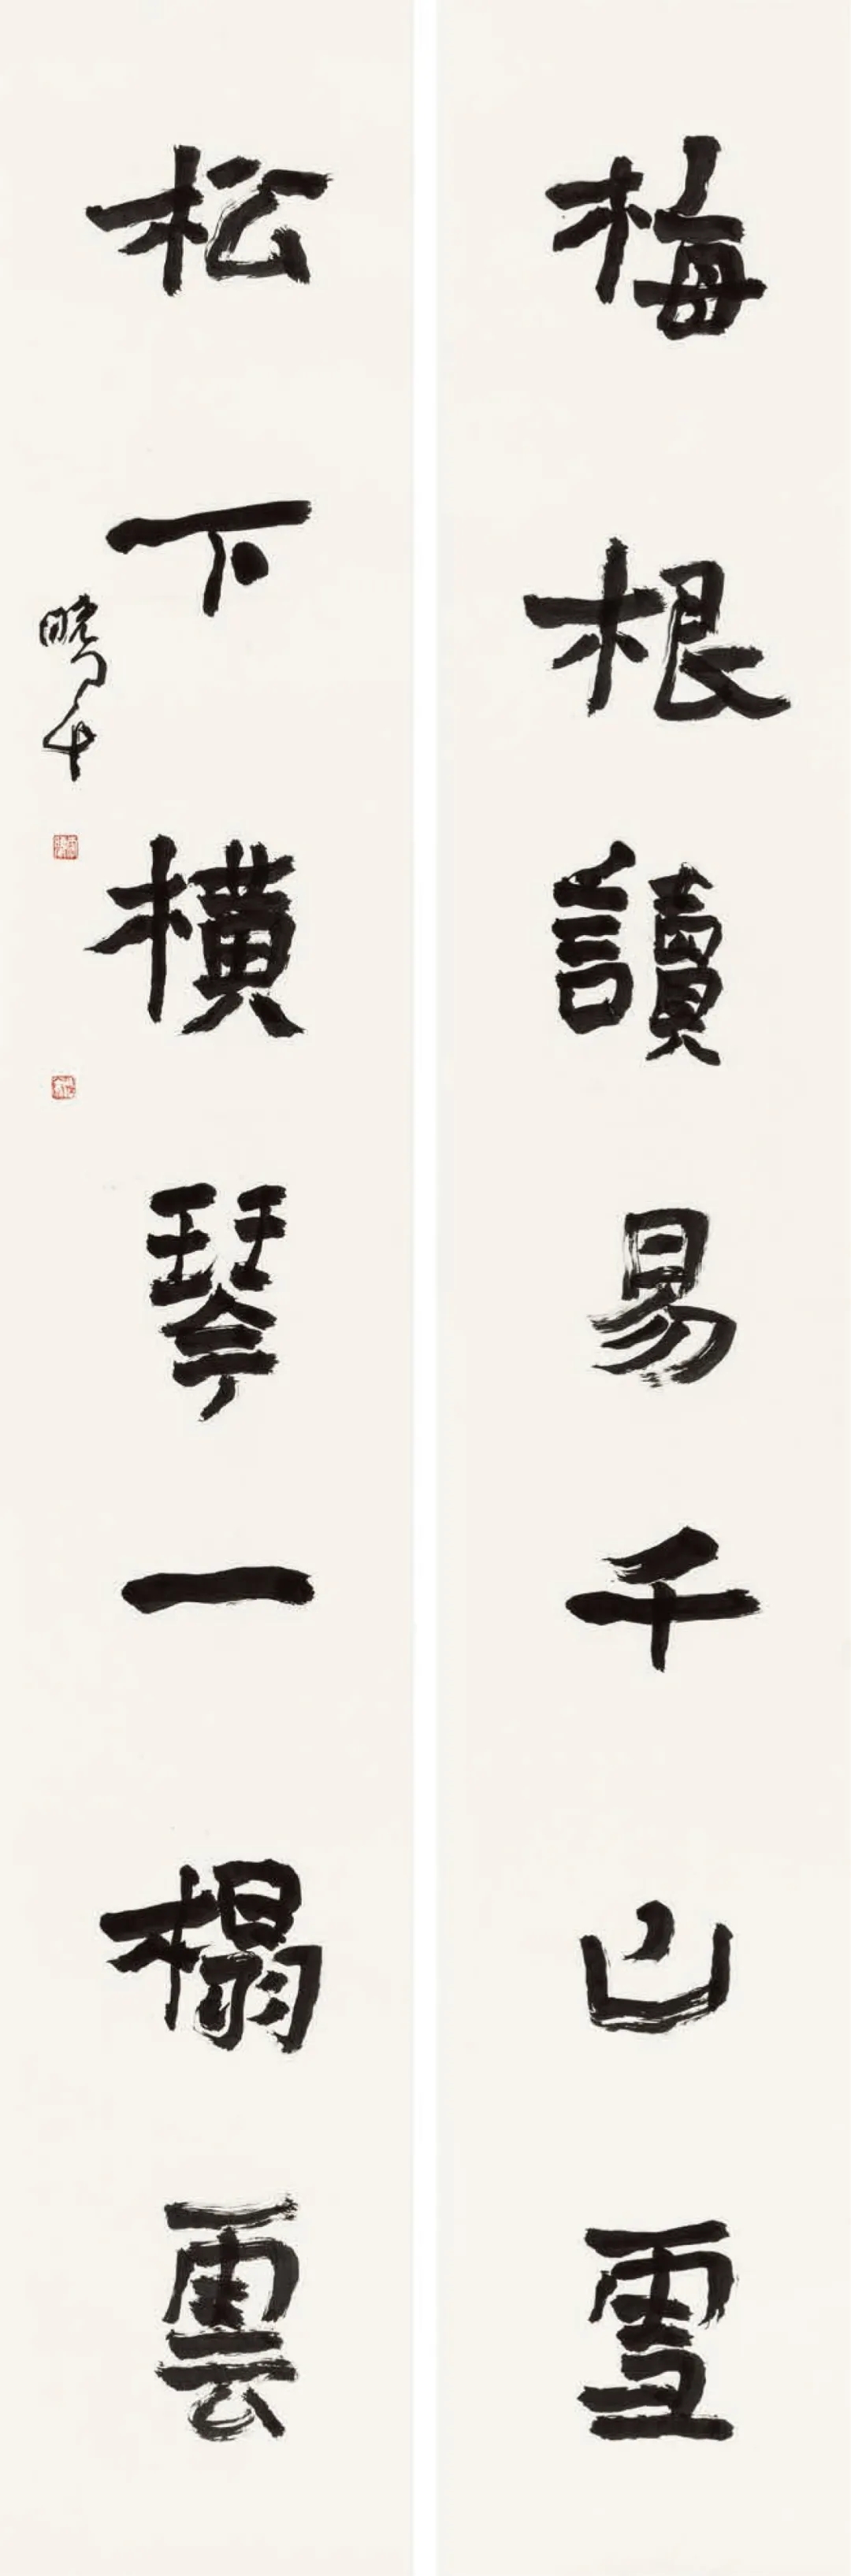 梅根讀易千山雪
松下橫琴一榻雲